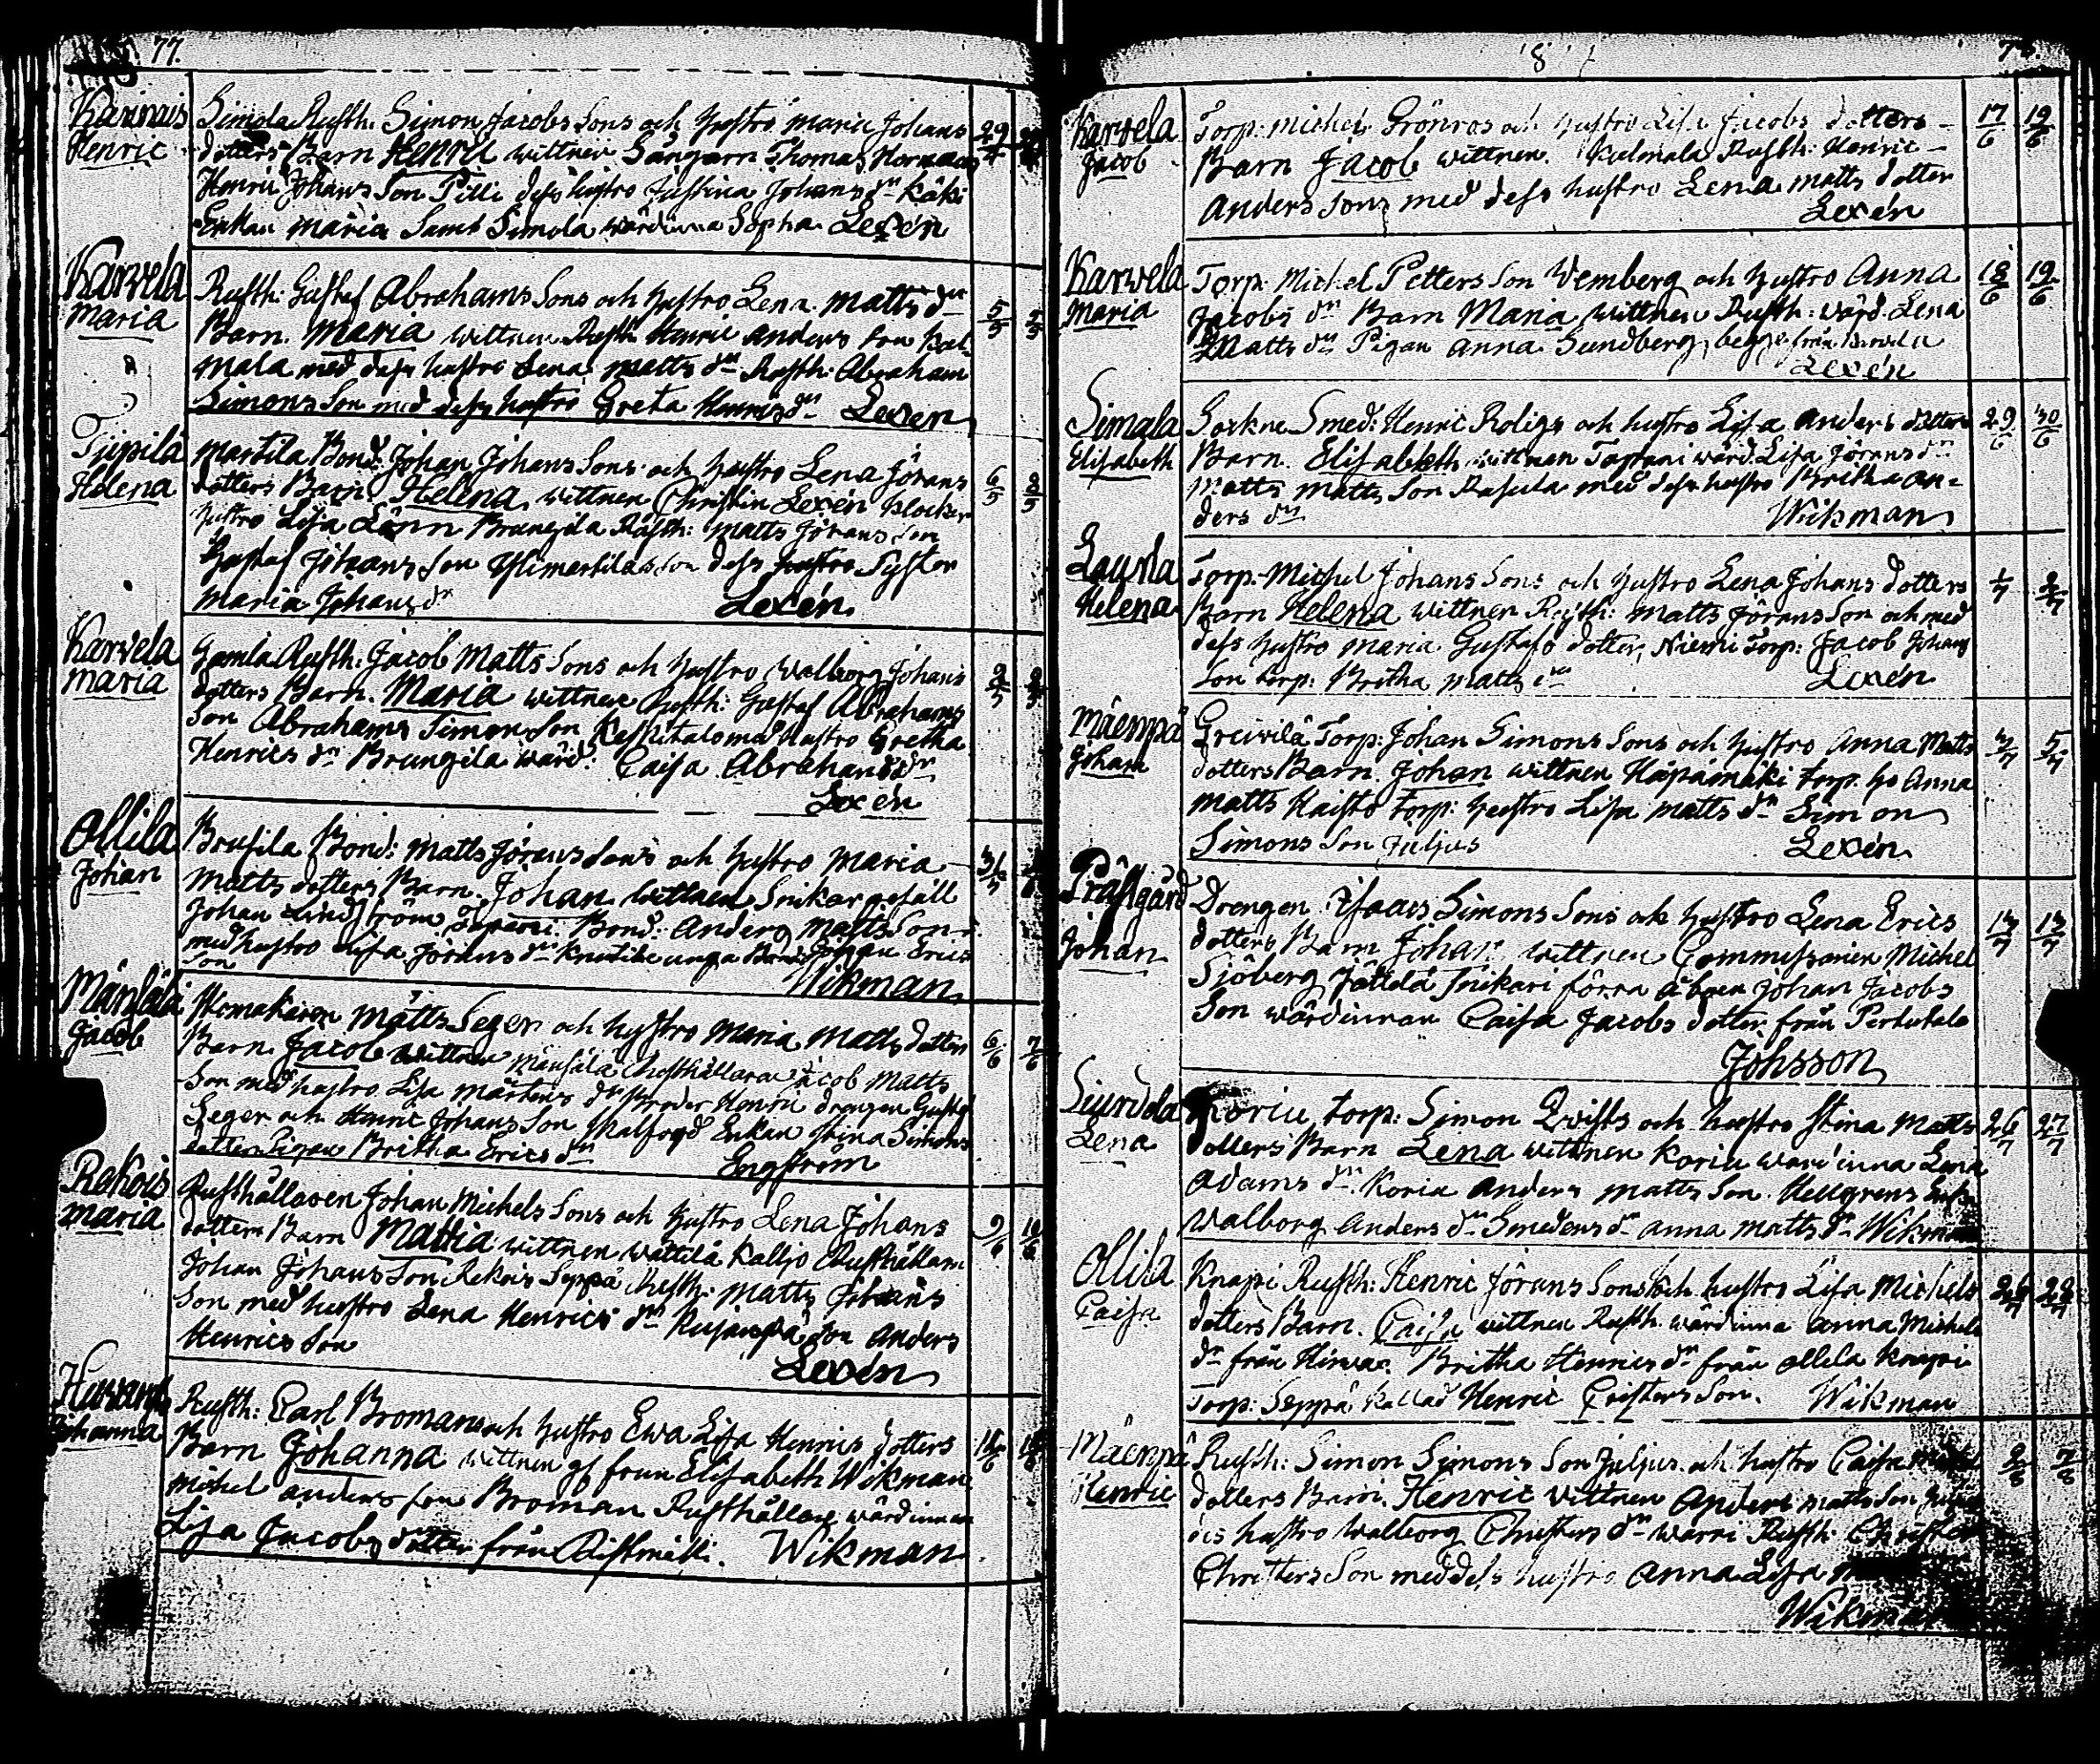 77.
Karinais
Henric
Simola Rusth. Simon Jacobs Sons och hustro Maria Johans
dotters Barn Henric wittnen Sångarn Thomas
Henric Johans Son Pilli dess hustro Justina Johans dr Käki
Enkan Maria Samt Simola wärdinna Sophia Lexén
29/4
Karvela
Maria
Rusth: Gustaf Abrahams Sons och hustro Lena Matts dr
Barn. Maria wittnen Rusth Henric Anders Son Kul-
mala med dess hustro Lena Matts dr Rusth: Abraham
Simons Son med dess hustro Greta Henrics dr Lexén
5/5
Tjipilä
Helena
Martila Bond: Johan Johans Sons och hustro Lena Jörans
dotters Barn. Helena wittnen Christin Lexén klockar
hustro Lisa Lönn Brungila Rusth: Matts Jörans Son
Gustaf Johans Son Ylimartila dess hustro Syster
Maria Johans dr Lexén
6/5 8/5
Karvela
Maria
Gamla Rusth: Jacob Matts Sons och hustro Walborg Johans
dotters Barn. Maria wittnen Rusth: Gustaf Abrahams
Son Abrahams Simons Son Keskitalo med hustro Gretha
Henrics dr Brungila Wärd: Caisa Abrahams dr
Lexén
8/5
Ollila
Johan
Brusila Bond: Matts Jörans Sons och hustro Maria
Matts dotters Barn. Johan wittnen Snikargesäll
Johan Lindström Tapani Bond: Anders Matts Son
med hustro Lisa Jörans dr Knutila unga Bond Johan Erics
Son Wikman
31/5
Mänsälä
Jacob
Skomakaren Matts Seger och hustro Maria Matts dotters
Barn. Jacob wittnen Mänsälä Rusthållaren Jacob Matts
Son med hustro Lisa Mårtens dr Broder Henric drengen Gustaf
Seger och Henric Johans Son Enkan Stina Simons
dotter Pigan Britha Erics dr Engström
6/6 7/6
Rekois
Maria
Rusthållaren Johan Michels Sons och hustro Lena Johans
dotters Barn Maria wittnen Wättilä Kalljo Rusthållarn
Johan Johans Son Rekois Seppä Rusth: Matts Johans
Son med hustro Lena Henrics dr Son Anders
Henrics Son
Lexén
9/6 10/6
Johanna
Rusth: Carl Bromans och hustro Ewa Lisa Henrics dotters
Barn Johanna wittnen gl frun Elisabeth Wikman
Michel Anders Son Broman Rusthållare wärdinnan
Lisa Jacobs dotter från Ristmäki. Wikman
Karvela
Jacob
Torp: Michel Grönros och hustro Lisa Jacobs dotters
Barn Jacob wittnen. Kulmala Rusth: Henric
Anders Sons med dess hustro Lena Matts dotter
Lexén
17/6 19/6
Karvela
Maria
Torp. Michel Petters Son Wemberg och hustro Anna
Jacobs dr Barn Maria wittnen Rusth: wärd. Lena
Matts dr Pigan Anna Sundberg begge från Karvela
Lexén
18/6 19/6
Simala
Elisabeth
Sockne Smed: Henric Roligs och hustro Lisa Anders dotters
Barn. Elisabeth wittnen Tapani wärd. Lisa Jörans dr
Matts Matts Son Rasula med dess hustro Britha An-
ders dr Wikman
29/6 30/6
Laurila
Helena
Torp: Michel Johans Sons och hustro Lena Johans dotters
Barn Helena wittnen Rusth: Matts Jörans Son och med
dess hustro Maria Gustafs dotter, Niemi Torp: Jacob Johans
Son torp: Britha Matts dr Lexén
1/7 2/7
Mäenpä
Johan
Greivilä Torp: Johan Simons Sons och hustro Anna Matts
dotters Barn. Johan wittnen Häpämäki torp. ho Anna
Matts Kaisto torp: hustro Lisa Matts dr Simon
Simons Son Juljus Lexén
3/7 5/7
Prästgård
Johan
Drengen Isaacs Simons Sons och hustro Lena Erics
dotters Barn Johan wittnen Commissarien Michel
Sjöberg Snikari förra åboen Johan Jacobs
Son wärdinnan Caisa Jacobs dotter från Pertutala
Johsson
13/7 13/7
Siurvola
Lena
Koriu torp: Simon Qvists och hustro Stina Matts
dotters Barn Lena wittnen Koriu wärdinna Lena
Adams dr. Koriu Anders Matts Son. Hellgrens Enka
Walborg Anders dr Smedens dr Anna Matts dr Wikman
26/7 27/7
Ollila
Caisa
Knapi Rusth: Henric Jörans Sons och hustro Lisa Michels
dotters Barn. Caisa wittnen Rusth. wärdinna Anna Michels
dr från Britha Henrics dr från Ollila Knapi
Torp: Seppä Kallas Henric Cristers Son. Wikman
28/7
Mäenpä
Henric
Rusth: Simon Simons Son Juljus och hustro Caisa
dotters Barn. Henric wittnen Anders Matts Son
des hustro Walborg Christers dr Warri Rusth: Christer
Christers Son med dess hustro Anna Lisa
Wikman
7/8